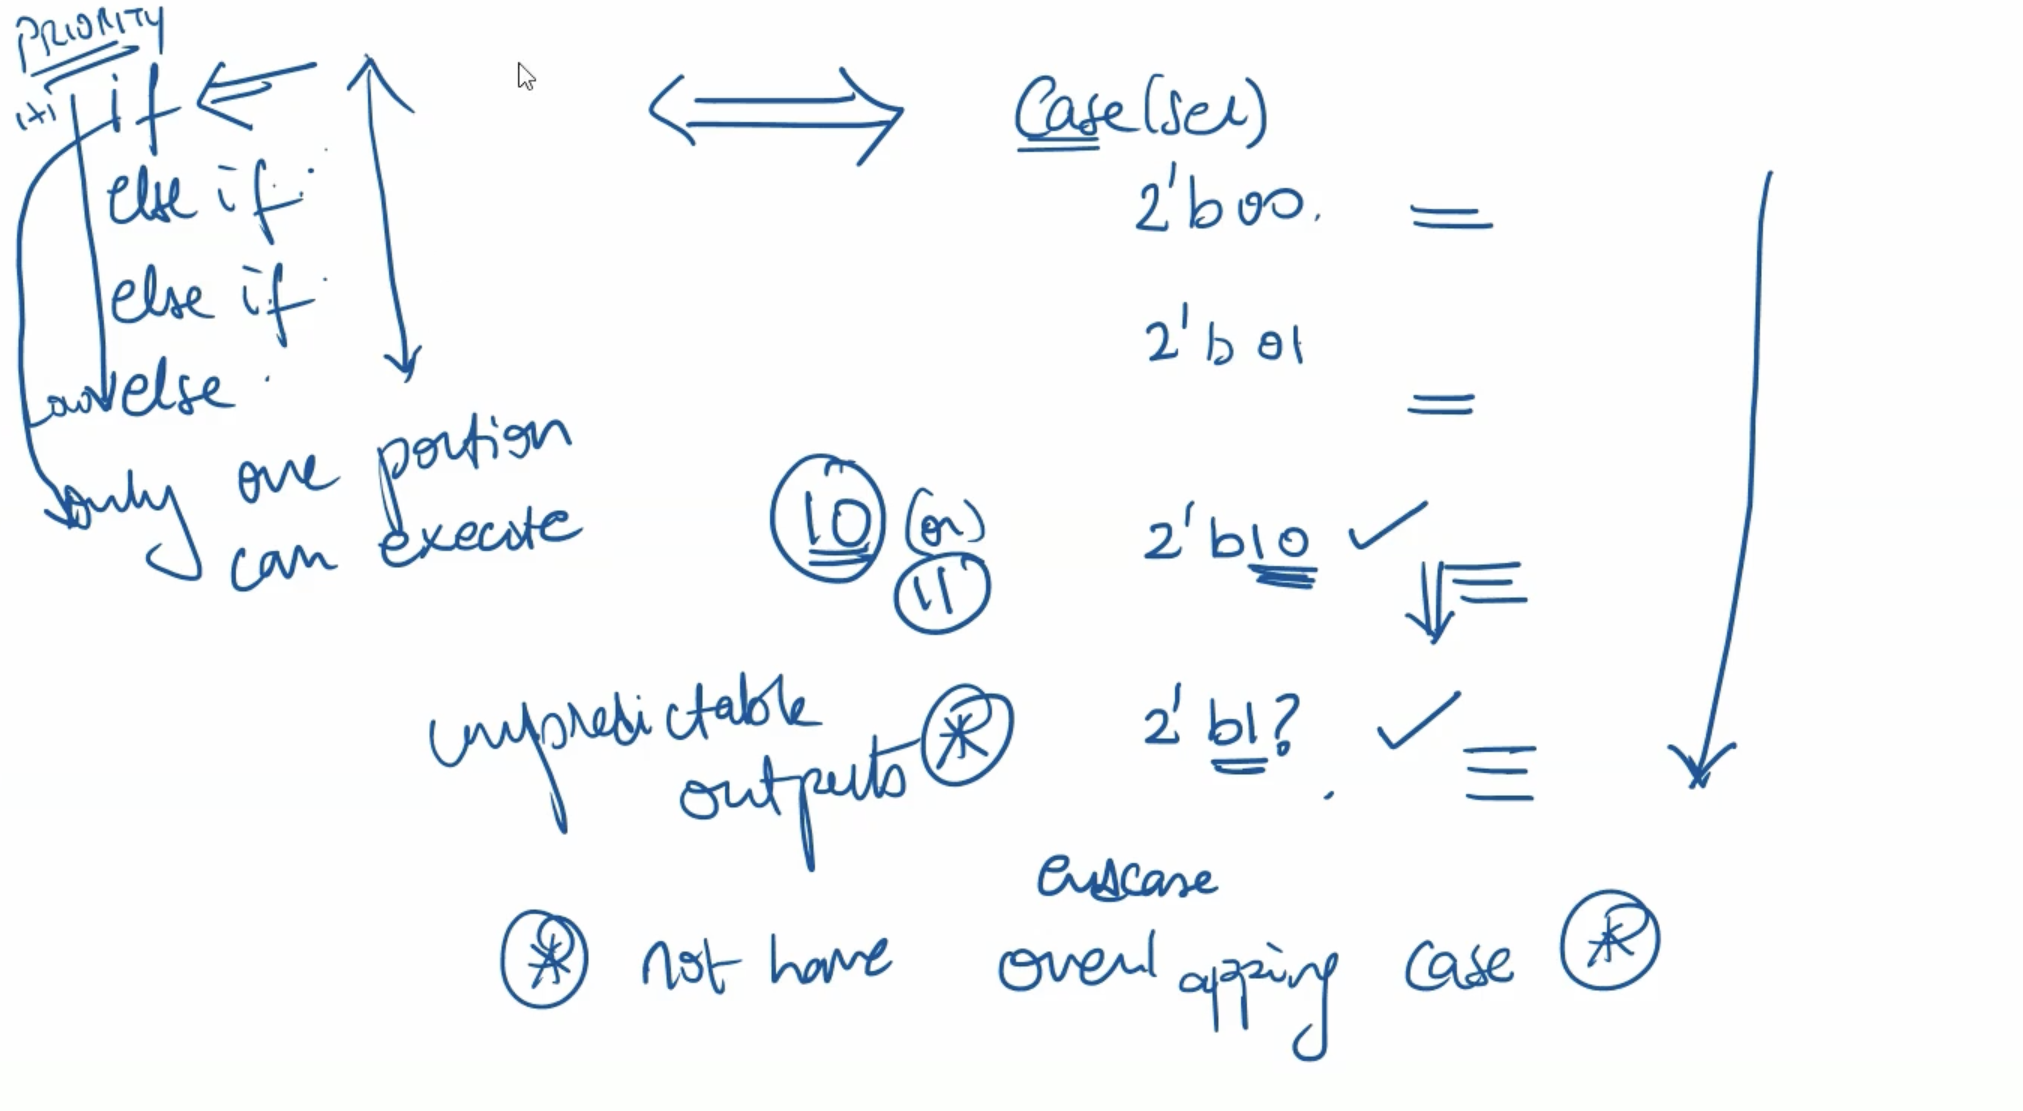 PRIORITY
if
else if
else if
else
only one portion
can execute
Case(sel)
2'b00.
2'b01
2'b10
2'b1?
10 (or)
11
unpredictable
outputs
endcase
not have overlapping case